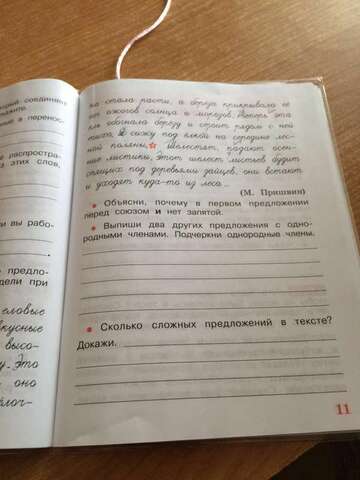 орый соединяет
ажите.
ые в перенос-
распростра-
из этих слов,
ы вы рабо-
предло-
дели при
еловые
вкусные
высо-
у. Это
оно
лоч-
ка стала расти, а берёза прикрывала её
от ожогов солнца и морозов. Теперь эта
ель обогнала берёзу и стоит рядом с ней
Я сижу под ёлкой на середине лес-
ной поляны. Шелестят, падают осен-
ние листики. Этот шелест листьев будит
спящих под деревьями зайцев, они встают
и уходят куда-то из леса...
(М. Пришвин)
Объясни, почему в первом предложении
перед союзом и нет запятой.
Выпиши два других предложения с одно-
родными членами. Подчеркни однородные члены.
Сколько сложных предложений в тексте?
Докажи.
11